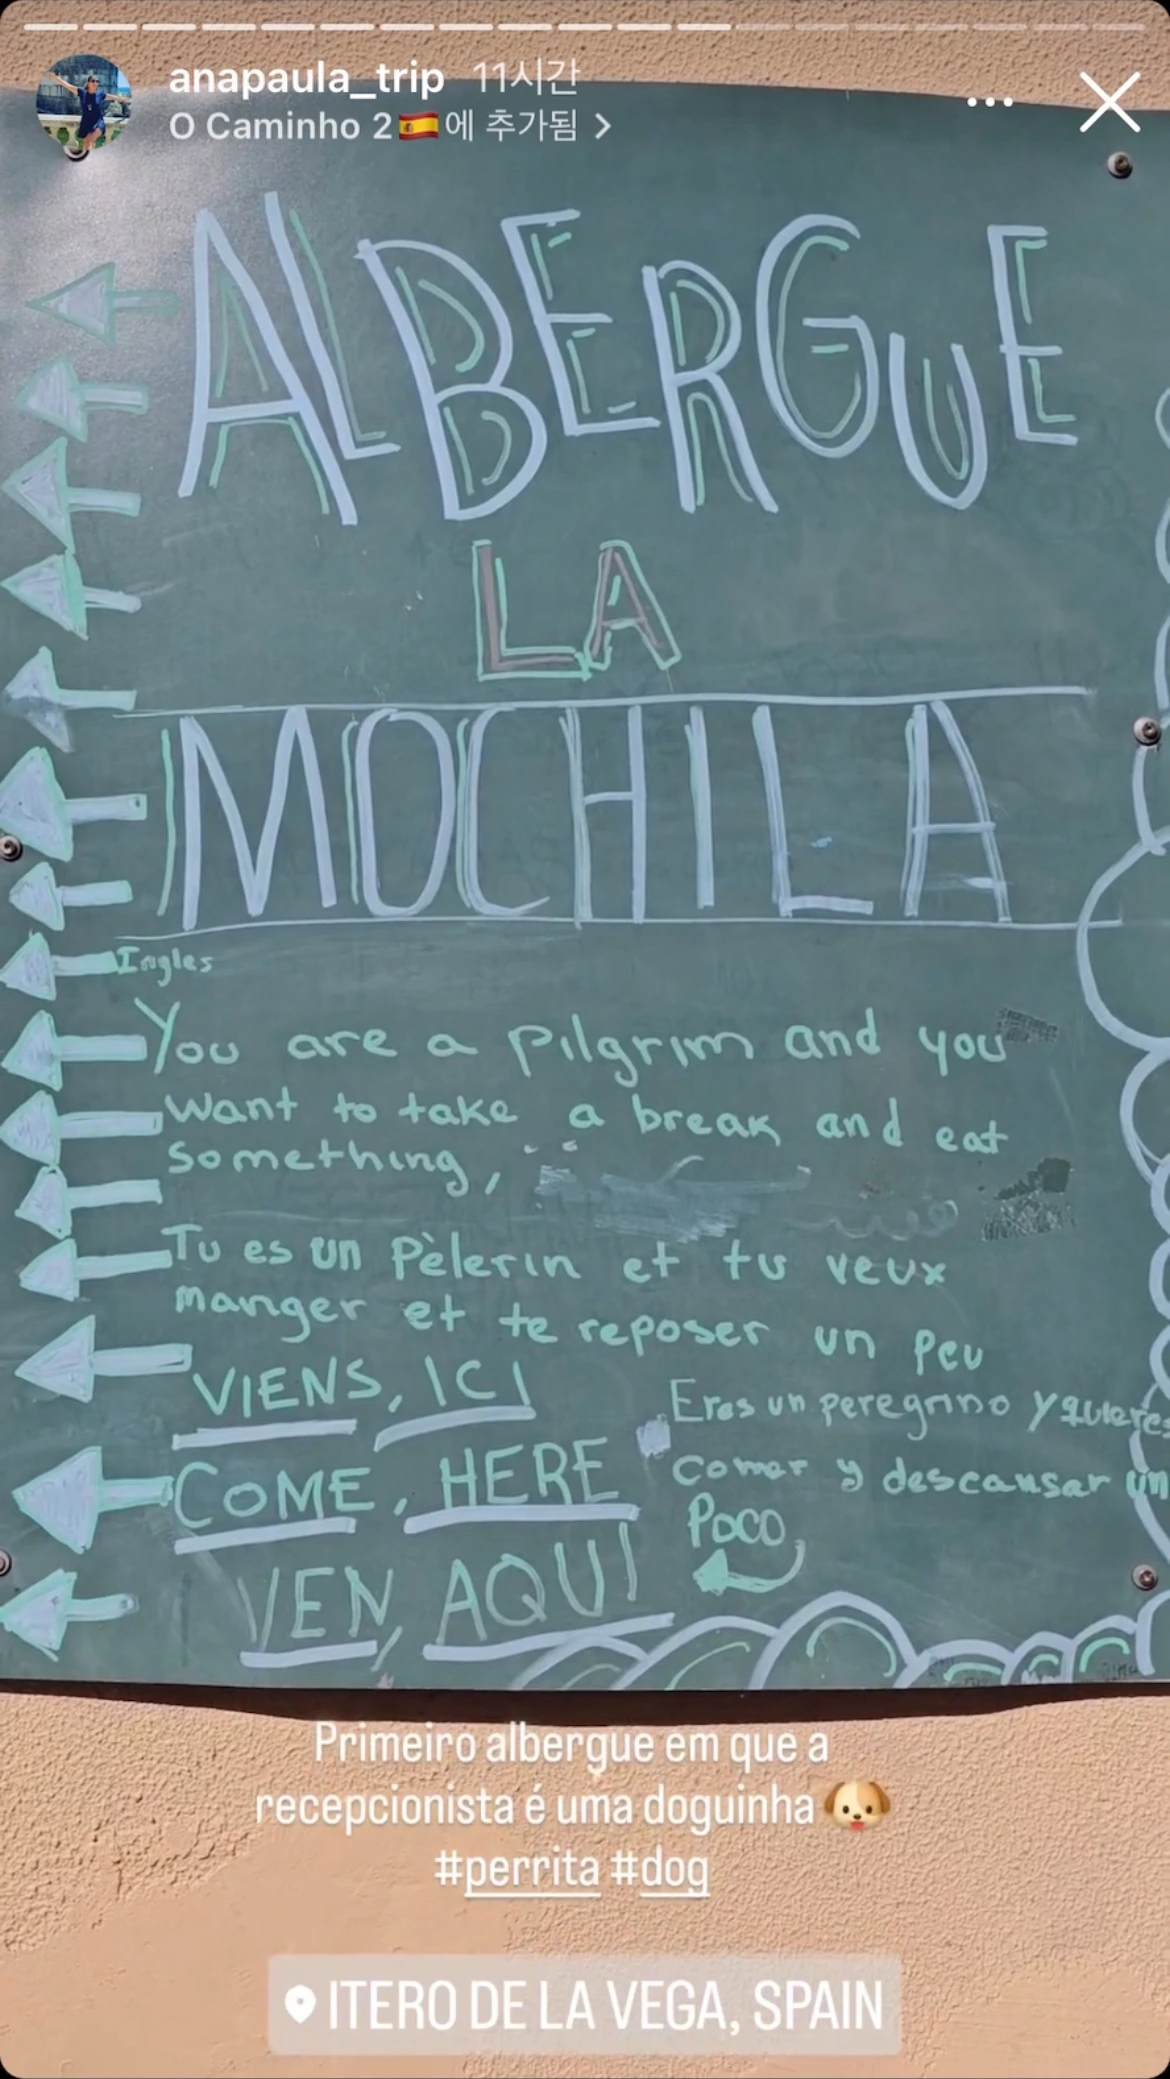 anapaula_trip 11시간
O Caminho 2🇪🇸에 추가됨
ALBERGUE
LA
MOCHILA
Ingles
You are a pilgrim and you
want to take a break and eat
something,
Tu es un Pèlerin et tu veux
manger et te reposer un peu
VIENS, ICI
COME, HERE
VEN, AQUI
Eres un peregrino y quieres
comer y descansar un
Poco
Primeiro albergue em que a
recepcionista é uma doguinha🐶
#perrita #dog
ITERO DE LA VEGA, SPAIN